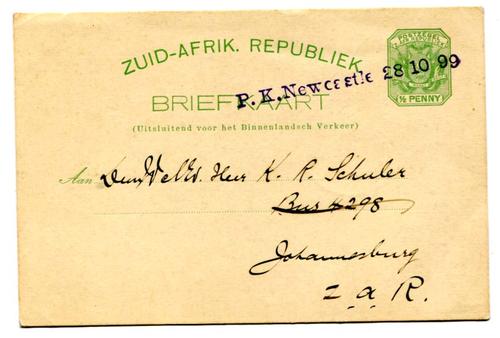 ZUID-AFRIK. REPUBLIEK.
P.K. Newcastle 28 10 99
½ PENNY
BRIEFKAART
(Uitsluitend voor het Binnenlandsch Verkeer)
Aan Den WelEd. Heer K. R. Schuler
Bus 4298
Johannesburg
Z. A. R.